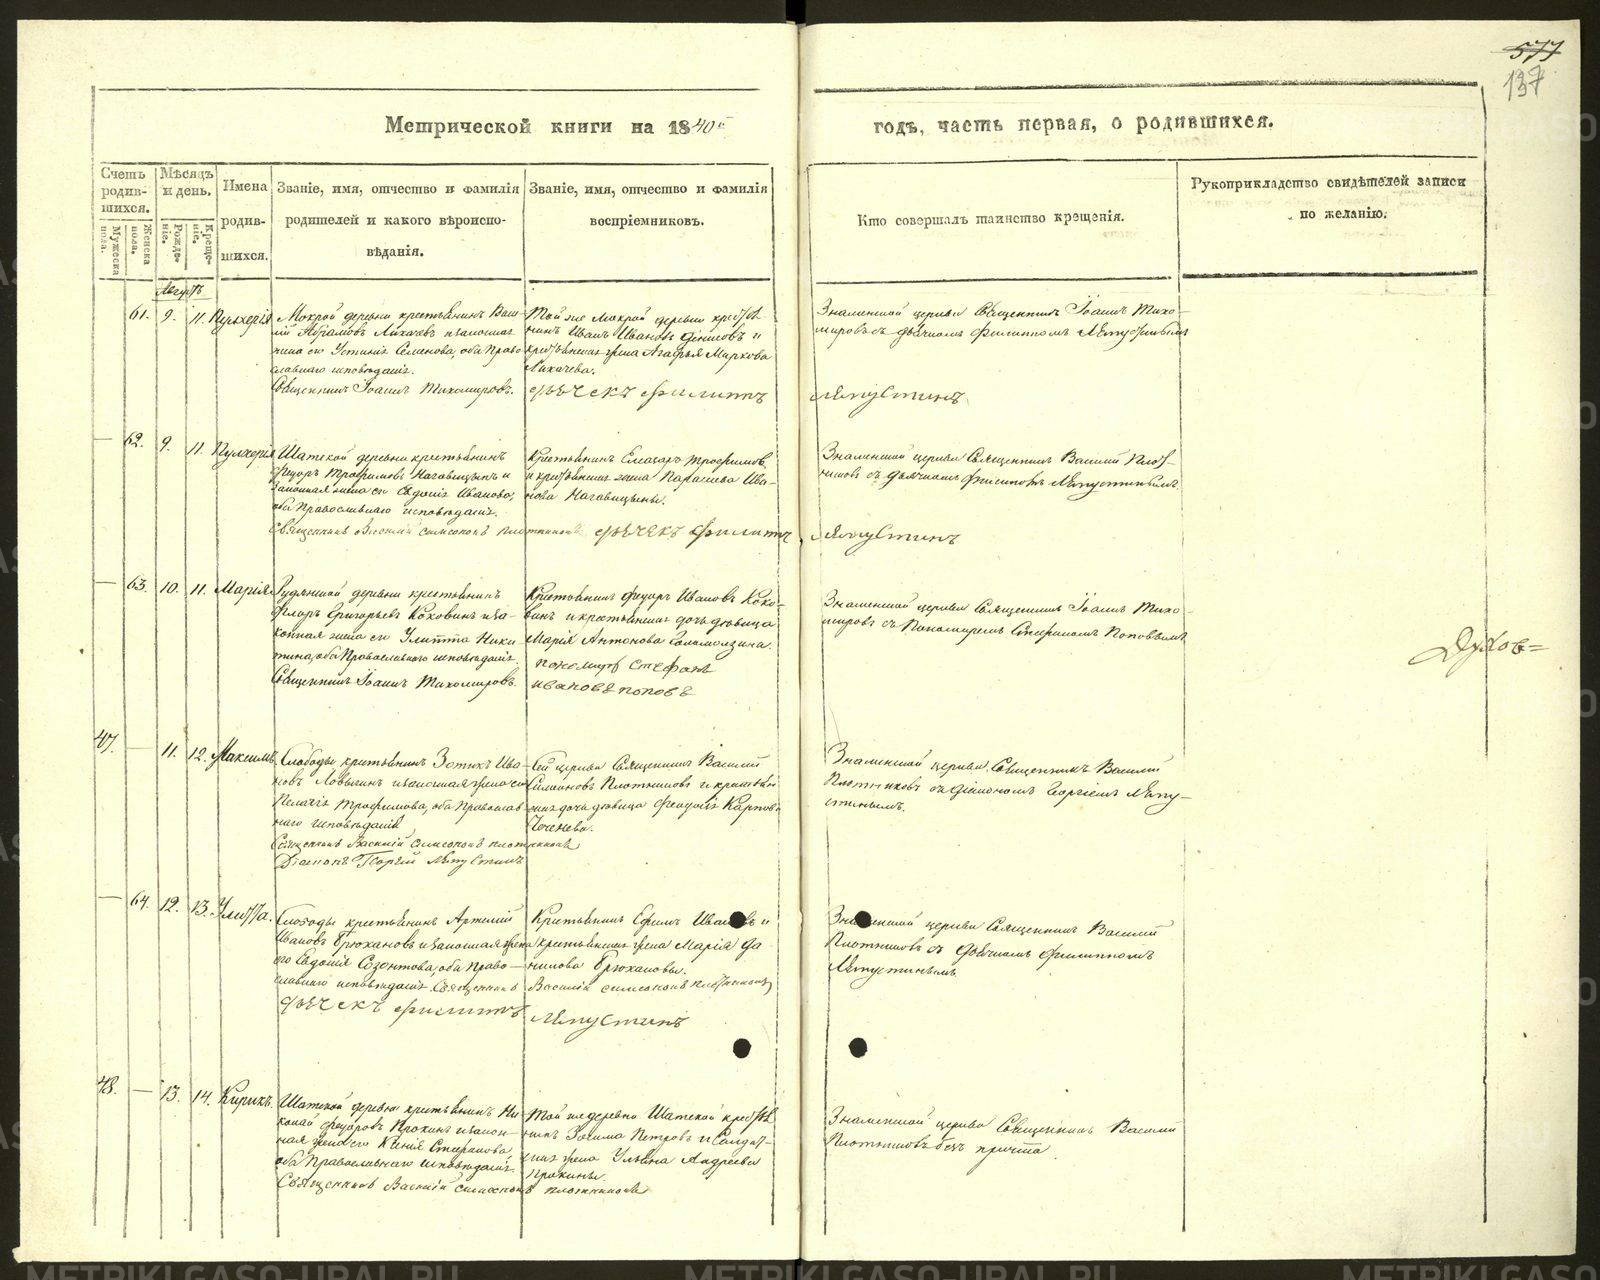 577
137
Метрической книги на 1840й
годъ, часть первая, о родившихся.
Счетъ родив-шихся.
Мужеска пола.
Женска пола.
Мѣсяцъ и день.
Рожде-нія.
Креще-нія.
Имена родив-шихся.
Званіе, имя, отчество и фамилія
родителей и какого вѣроиспо-
вѣданія.
Званіе, имя, отчество и фамилія
воспріемниковъ.
Кто совершалъ таинство крещенія.
Рукоприкладство свидѣтелей записи
по желанію.
Августъ
61. 9. 11. Пульхерія
Мокрой деревни крестьянинъ Васи-
лій Абрамовъ Лихачевъ и законная
жена его Устинія Семенова, оба Право
славнаго исповѣданія.
Священникъ Іоаннъ Тихомировъ.
Той же Мокрой деревни кресть
нинъ Иванъ Ивановъ Денисовъ и
крестьянская жена Агафья Маркова
Лихачева.
дьячекъ Филиппъ
Знаменской церкви Священникъ Іоаннъ Тихо-
мировъ съ дьячкомъ Филиппомъ Ляпустинымъ
Ляпустинъ
62. 9. 11. Пулхерія
Шатской деревни крестьянинъ
Федоръ Трофимовъ Нагавицынъ и
законная жена его Евдокія Иванова,
оба Православнаго исповѣданія.
Священникъ Василій Симеоновъ Плотниковъ
Крестьянинъ Елеазаръ Трофимовъ
и крестьянская жена Параскева Ива-
нова Нагавицыны.
дьячекъ Филиппъ
Знаменской церкви Священникъ Василій Плот-
никовъ съ дьячкомъ Филиппомъ Ляпустинымъ.
Ляпустинъ
63. 10. 11. Марія
Рудянской деревни крестьянинъ
Флоръ Григорьевъ Коковинъ и за-
конная жена его Улитта Ники
тина, оба Православнаго исповѣданія.
Священникъ Іоаннъ Тихомировъ.
Крестьянинъ Федоръ Ивановъ Коко-
винъ и крестьянская дочь дѣвица
Марія Антонова
пономарь Стефанъ
Ивановъ Поповъ
Знаменской церкви Священникъ Іоаннъ Тихо-
мировъ съ Пономаремъ Стефаномъ Поповымъ
Духов=
47. 11. 12. Максимъ
Слободы крестьянинъ Зотикъ Ива-
новъ и законная жена его
Пелагія Трофимова, оба Православ
наго исповѣданія
Священникъ Василій Симеоновъ Плотниковъ
Діаконъ Георгій Ляпустинъ
Сей церкви Священникъ Василій
Симеоновъ Плотниковъ и крестьян
ская дочь дѣвица Феодосія Карпова
Знаменской церкви Священникъ Василій
Плотниковъ съ Діакономъ Георгіемъ Ляпу-
стинымъ.
64. 12. 13. Улитта.
Слободы крестьянинъ Артемій
Ивановъ Брюхановъ и законная жена
его Евдокія Созонтова, оба Право-
славнаго исповѣданія. Священникъ
дьячекъ Филиппъ
Крестьянинъ Ефимъ Ивановъ и
крестьянская жена Марія Да
нилова Брюхановы.
Василій Симеоновъ Плотниковъ
Ляпустинъ
Знаменской церкви Священникъ Василій
Плотниковъ съ Дьячкомъ Филиппомъ
Ляпустинымъ
48. 13. 14. Кирикъ.
Шатской деревни крестьянинъ Ни
колай Федоровъ Прокинъ и закон-
ная жена его Ксенія Стефанова,
оба Православнаго исповѣданія.
Священникъ Василій Симеоновъ Плотниковъ
Той же деревни Шатской кресть
нинъ Зосима Петровъ и Солдат-
ская жена Ульяна Андреева
Прокины.
Знаменской церкви Священникъ Василій
Плотниковъ безъ причта.
METRIKI.GASO-URAL.RU
METRIKI.GASO-URAL.RU
METRIKI.GASO-URAL.RU